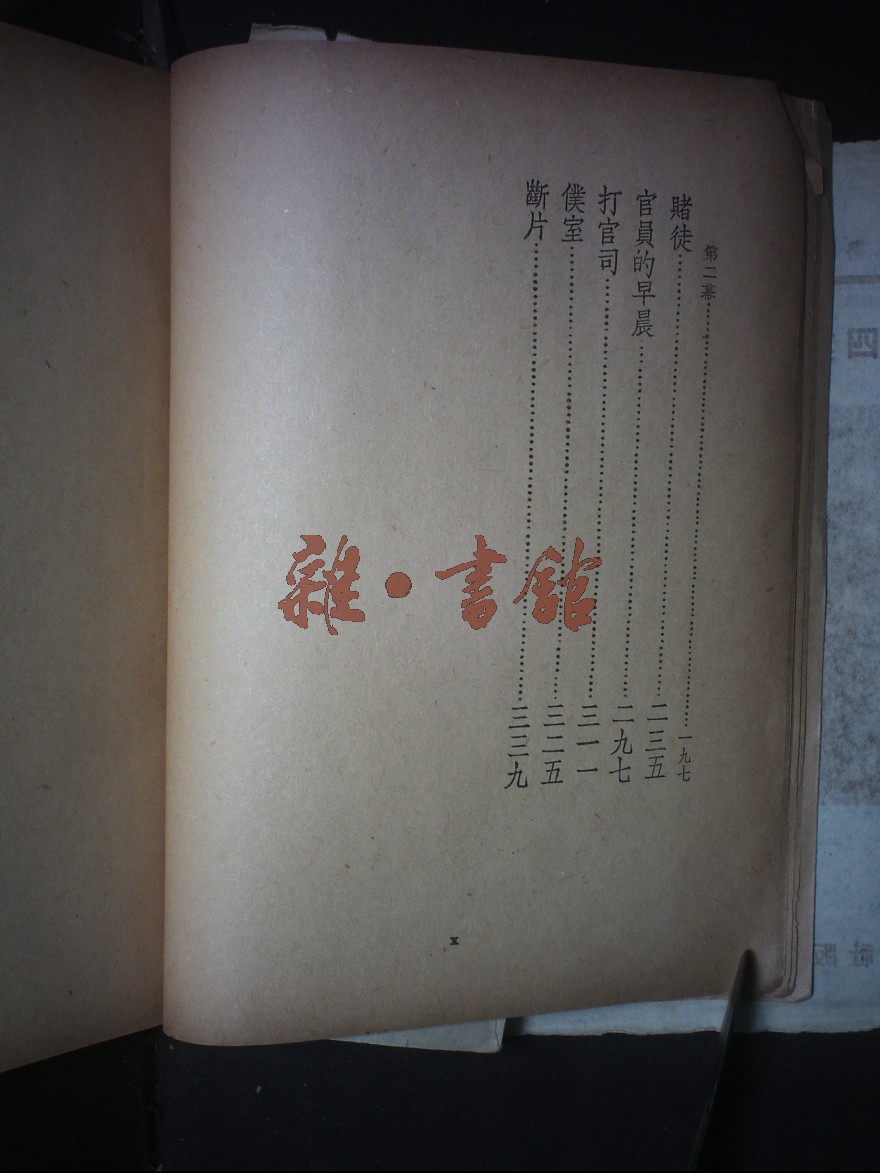 第二幕……一九七
賭徒……二三五
官員的早晨……二九七
打官司……三一一
僕室……三二五
斷片……三三九
x
雜•書館